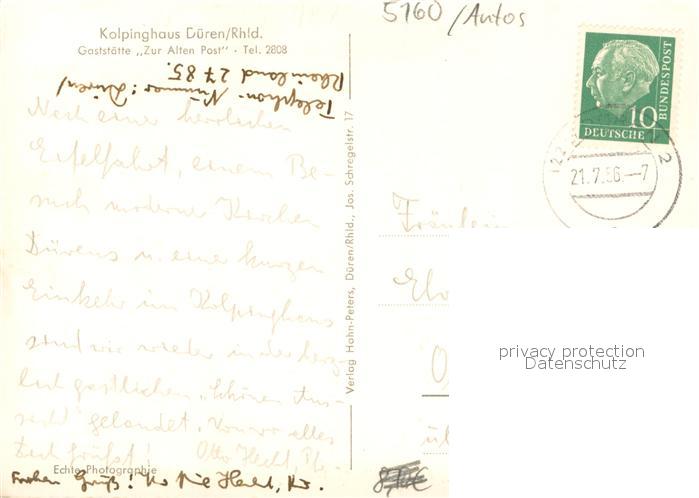 Kolpinghaus Düren/Rhld.
Gaststätte „Zur Alten Post" · Tel. 2808
Telephon-Nummer: Düren/
Rheinland 2785.
Nach einer herrlichen
Eifelfahrt, einem Be-
such moderner Kirchen
Dürens u. einer kurzen
Einkehr im Kolpinghaus
sind wir wieder in der herz-
lich gastlichen „Schönen Aus-
sicht" gelandet. Von wo alles
Euch grüßt! Otto Hecht,
Echte Photographie
Frohen Gruß! Hecht,
Verlag Hahn-Peters, Düren/Rhld., Jos. Schregelstr. 17
5160/Autos
10
DEUTSCHE
BUNDESPOST
21.7.56.–7
Fräulein
privacy protection
Datenschutz